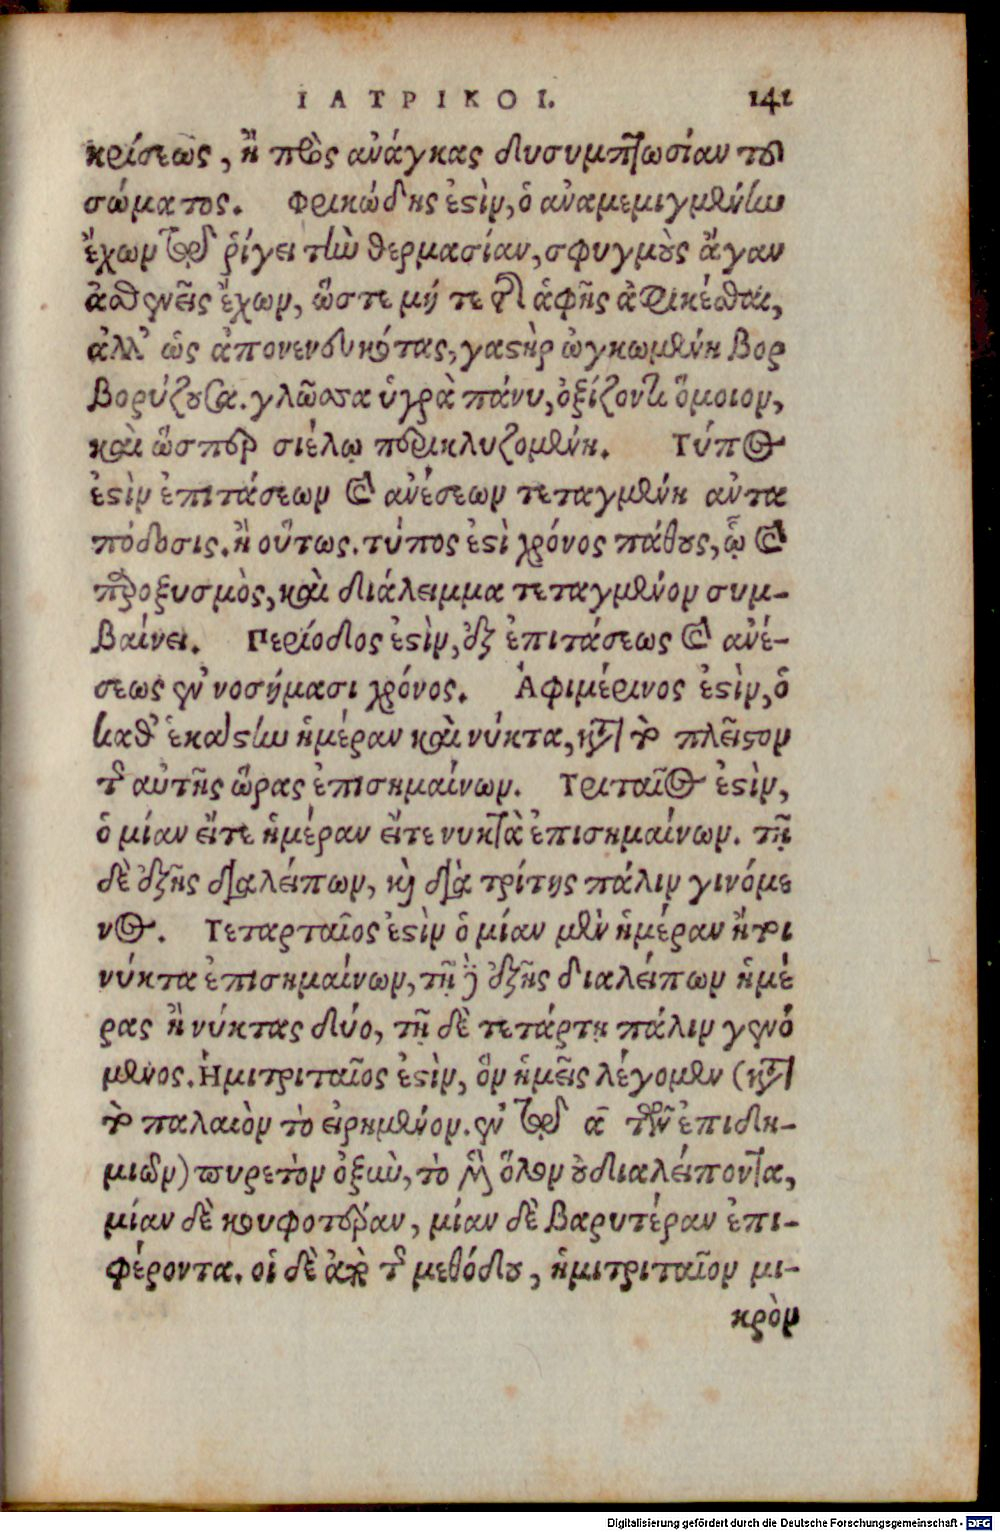 ΙΑΤΡΙΚΟΙ. 141
κρίσεως, ἢ πρὸς ἀνάγκας δυσυμπτωσίαν τοῦ
σώματος. Φρικώδης ἐστὶν, ὁ ἀναμεμιγμένην
ἔχων τῷ ῥίγει τὴν θερμασίαν, σφυγμοὺς ἄγαν
ἀσθενεῖς ἔχων, ὥστε μή τε διὰ ἁφῆς ἀφικέσθαι,
ἀλλ' ὡς ἀπονενευκότας, γαστὴρ ὠγκωμένη βορ
βορύζουσα. γλῶσσα ὑγρὰ πάνυ, ὀξίζοντι ὅμοιον,
καὶ ὥσπερ σιέλῳ περικλυζομένη. Τύπος
ἐστὶν ἐπιτάσεων καὶ ἀνέσεων τεταγμένη ἀντα
πόδοσις. ἢ οὕτως. τύπος ἐστὶ χρόνος πάθους, ᾧ καὶ
παροξυσμὸς, καὶ διάλειμμα τεταγμένον συμ-
βαίνει. Περίοδος ἐστὶν, ἐξ ἐπιτάσεως καὶ ἀνέ-
σεως ἐν νοσήμασι χρόνος. Ἀφιμέρινος ἐστὶν, ὁ
καθ' ἑκάστην ἡμέραν καὶ νύκτα, κατὰ τὸ πλεῖστον
τῆς αὐτῆς ὥρας ἐπισημαίνων. Τριταῖος ἐστὶν,
ὁ μίαν εἴτε ἡμέραν εἴτε νυκτὰ ἐπισημαίνων. τῇ
δὲ ἑξῆς διαλείπων, καὶ διὰ τρίτης πάλιν γινόμε
νος. Τεταρταῖος ἐστὶν ὁ μίαν μὲν ἡμέραν ἤτοι
νύκτα ἐπισημαίνων, τῇ δὲ ἑξῆς διαλείπων ἡμέ
ρας ἢ νύκτας δύο, τῇ δὲ τετάρτῃ πάλιν γενό
μενος. Ἡμιτριταῖος ἐστὶν, ὃν ἡμεῖς λέγομεν (κατὰ
τὸ παλαιὸν τὸ εἰρημένον. ἐν τῷ α τῶν ἐπιδη-
μιῶν) πυρετὸν ὀξὺν, τὸ μὲν ὅλον οὐ διαλείποντα,
μίαν δὲ κουφοτέραν, μίαν δὲ βαρυτέραν ἐπι-
φέροντα. οἱ δὲ ἀπὸ τῆς μεθόδου, ἡμιτριταῖον μι-
κρὸν
Digitalisierung gefördert durch die Deutsche Forschungsgemeinschaft - DFG